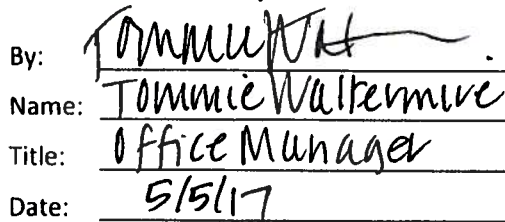 By: Tommie Wat
Name: Tommie Waltermire
Title: Office Manager
Date: 5/5/17